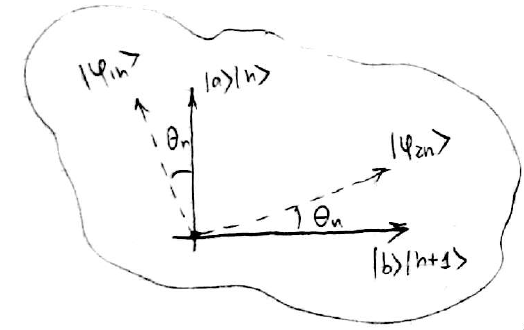 |φ₁ₙ⟩
|a⟩|n⟩
θₙ
|φ₂ₙ⟩
θₙ
|b⟩|n+1⟩